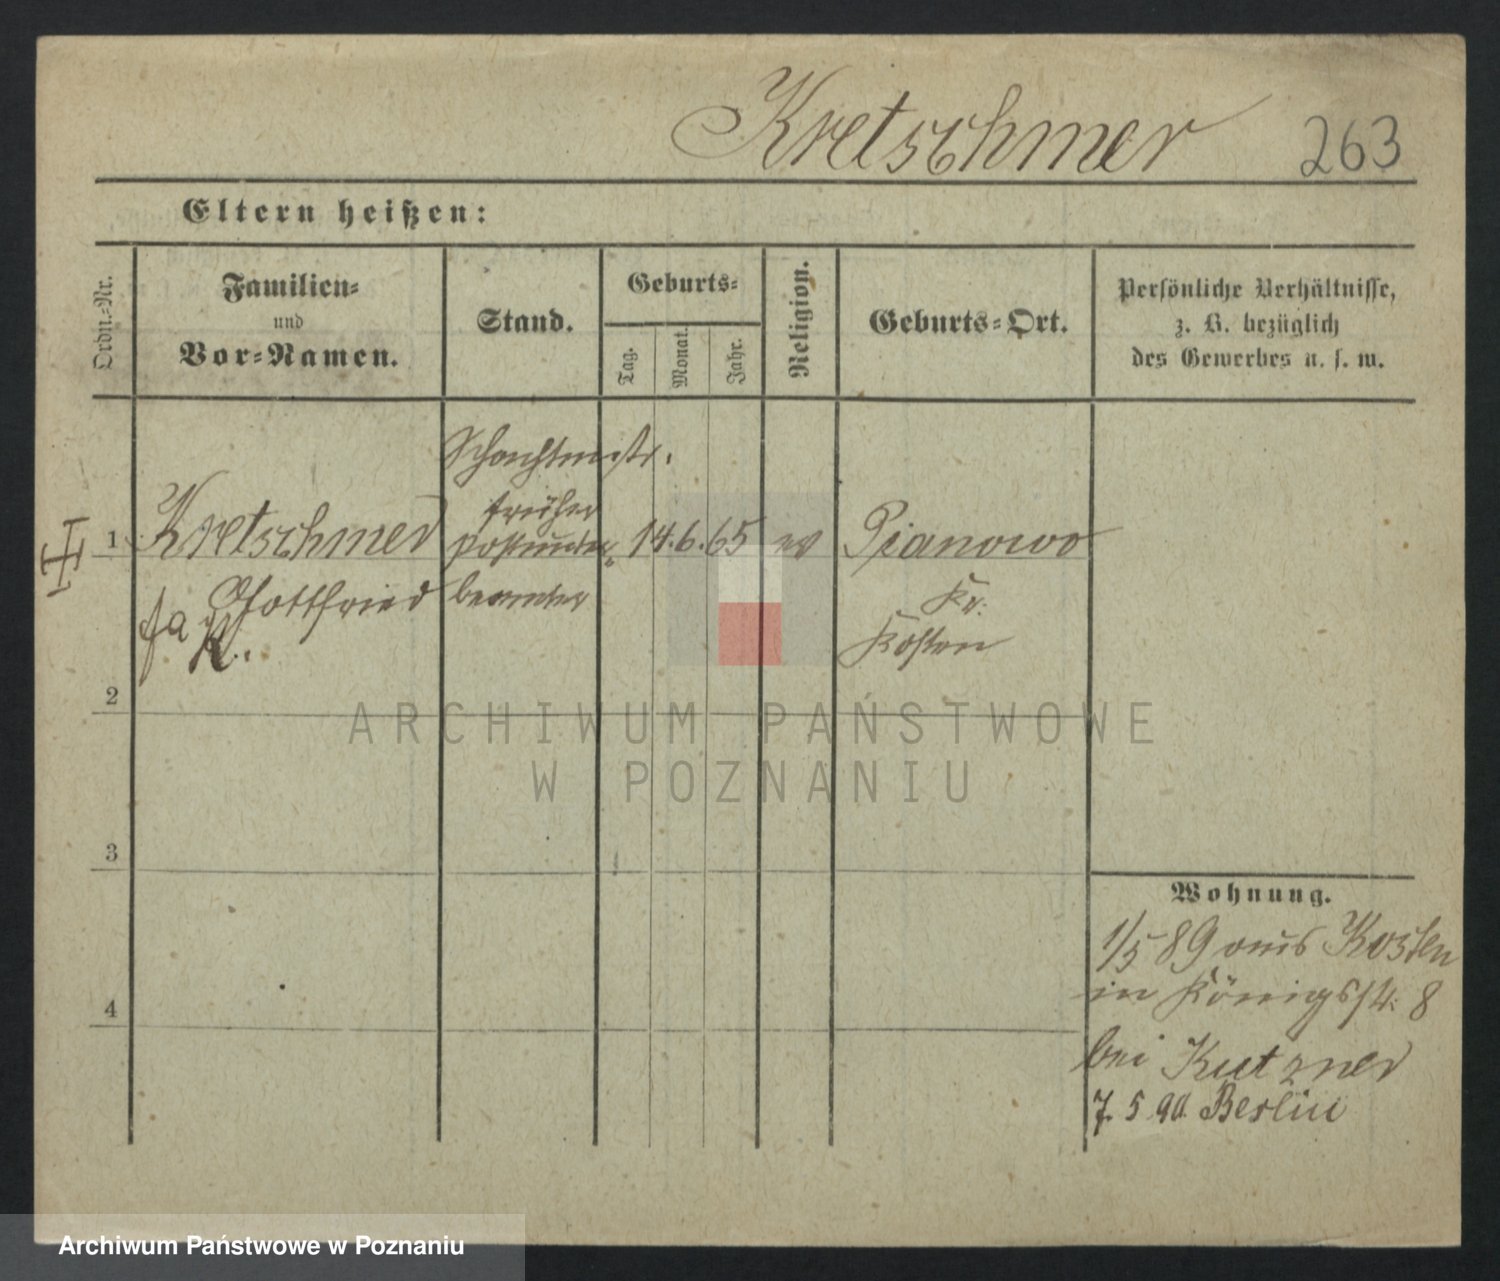 Kretschmer 263
Eltern heißen:
Ordn.-Nr.
Familien-
und
Vor-Namen.
Stand.
Geburts-
Tag.
Monat.
Jahr.
Religion.
Geburts-Ort.
Persönliche Verhältnisse,
z. B. bezüglich
des Gewerbes u. s. w.
Schachtmstr.
früher
1 Kretschmer 14. 6. 65 ev Pianowo
Gottfried beamter Kr.
Kosten
2
ARCHIWUM PAŃSTWOWE
W POZNANIU
3
Wohnung.
1/5 89 aus Kosten
in Königsstr. 8
4
bei Kutzner
7. 5 90 Berlin
Archiwum Państwowe w Poznaniu